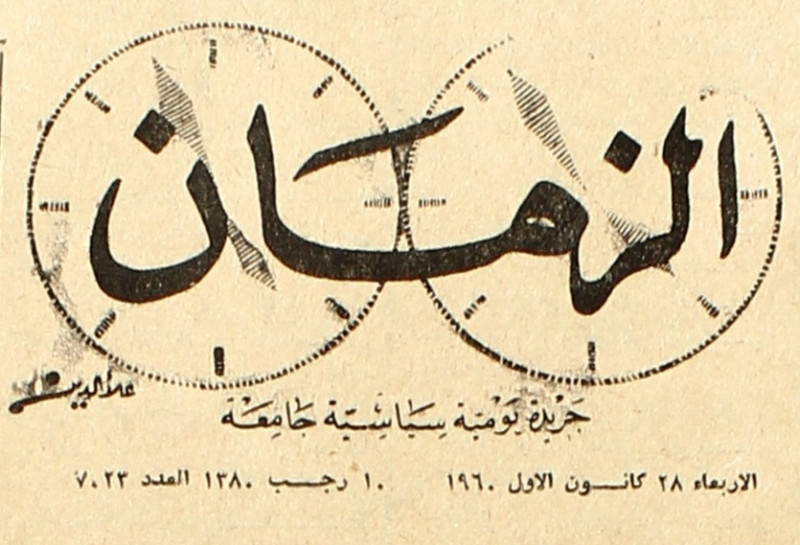 الزمان
علاء الدين
جَريْدة يَوْميَّة سيَاسيَّة جَامِعَة
الاربعاء ٢٨ كانـــون الاول ١٩٦٠ ١٠ رجـــب ١٣٨٠ العدد ٧٠٢٣